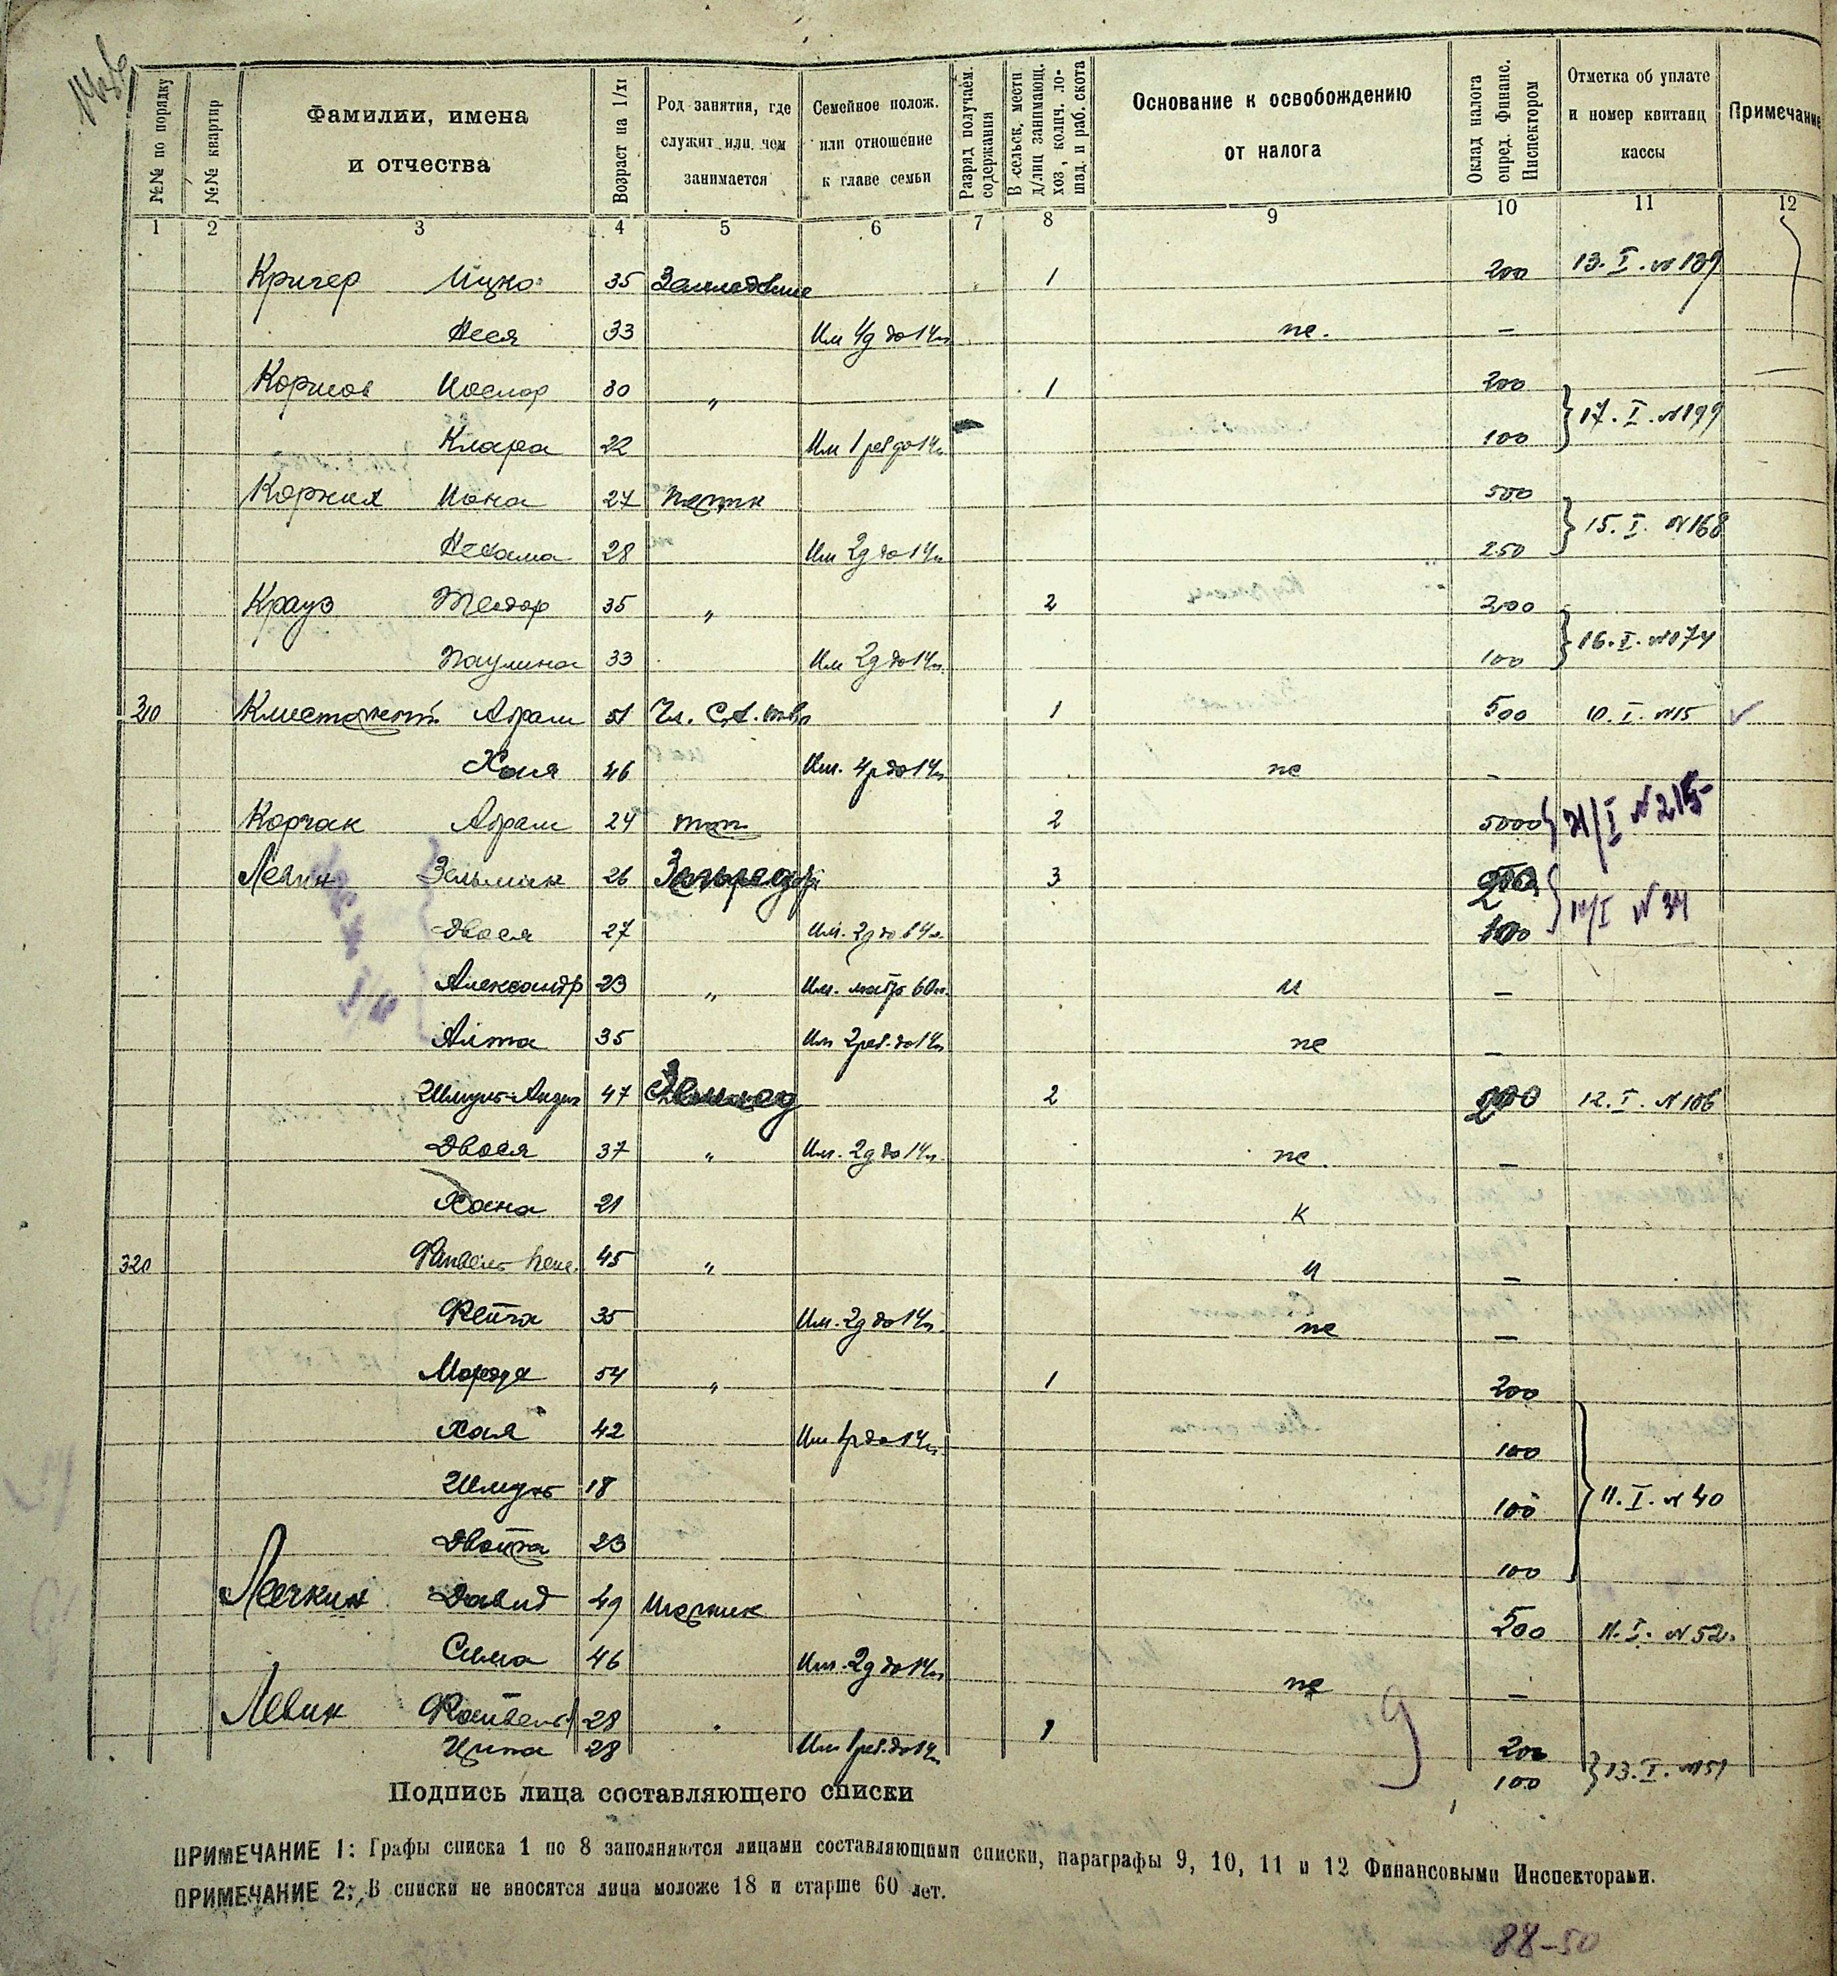 №№ по порядку
№№ квартир
Фамилии, имена и отчества
Возраст на 1/II
Род занятия, где служит или чем занимается
Семейное полож. или отношение к главе семьи
Разряд получаем. содержания
В сельск. местн. д/лиц занимающ. хоз., колич. лошад. и раб. скота
Основание к освобождению от налога
Оклад налога опред. Финанс. Инспектором
Отметка об уплате и номер квитанц кассы
Примечание
1 2 3 4 5 6 7 8 9 10 11 12
Кригер Ицко 35 1 200 13. I. №189
Песя 33 Им 4д до 14л не. —
30 „ 1 200
Клара 22 Им 1 реб до 14л 100 } 17. I. №199
Иона 27 500
Нехама 28 Им 2д до 14л 250 } 15. I. №168
Крауз Теодор 35 „ 2 200
Паулина 33 Им 2д до 14л. 100 } 16. I. №174
310 Абрам 51 1 500 10. I. №15
Хая 46 Им. 4р до 14л не —
Корчак Абрам 24 2 5000 } 21/I №215
Левин Зельман 26 3
Двося 27 Им. 2д до 14л. 100 } 11/I №34
Александр 23 „ Им. 60л. и —
Алта 35 Им 2реб. до 14л не —
47 2 200 12. I. №106
Двося 37 „ Им. 2д до 14л. не. —
Хана 21 к
320 45 „ и —
Фейга 35 Им. 2д до 14л. не —
Мордух 54 „ 1 200
Хая 42 Им 1р до 14л. 100
Шмуль 18 100 } 11. I. №40
Двойра 23 100
Лечкин Давид 49 500 11. I. №52.
Сима 46 Им. 2д до 14л не —
Левин Файвель 28 „ 1 200
Ципа 28 Им 1реб. до 14л 100 } 13. I. №151
Подпись лица составляющего списки
ПРИМЕЧАНИЕ 1: Графы списка 1 по 8 заполняются лицами составляющими списки, параграфы 9, 10, 11 и 12 Финансовыми Инспекторами.
ПРИМЕЧАНИЕ 2: В списки не вносятся лица моложе 18 и старше 60 лет.
88-50